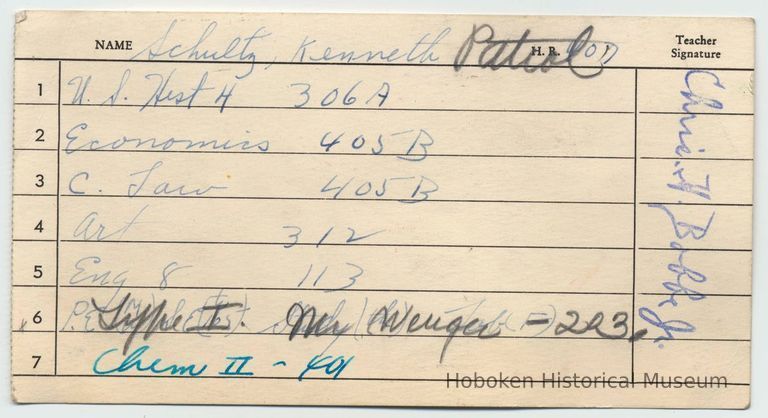 NAME Schultz, Kenneth Patrol H. R. 407 Teacher Signature
1 U. S. Hist 4 306A
2 Economics 405B
3 C. Law 405B
4 Art 312
5 Eng 8 113
6 Type I. Mr Wenger - 223.
7 Chem II - 401
Chris. H. Bobbe Jr.
Hoboken Historical Museum